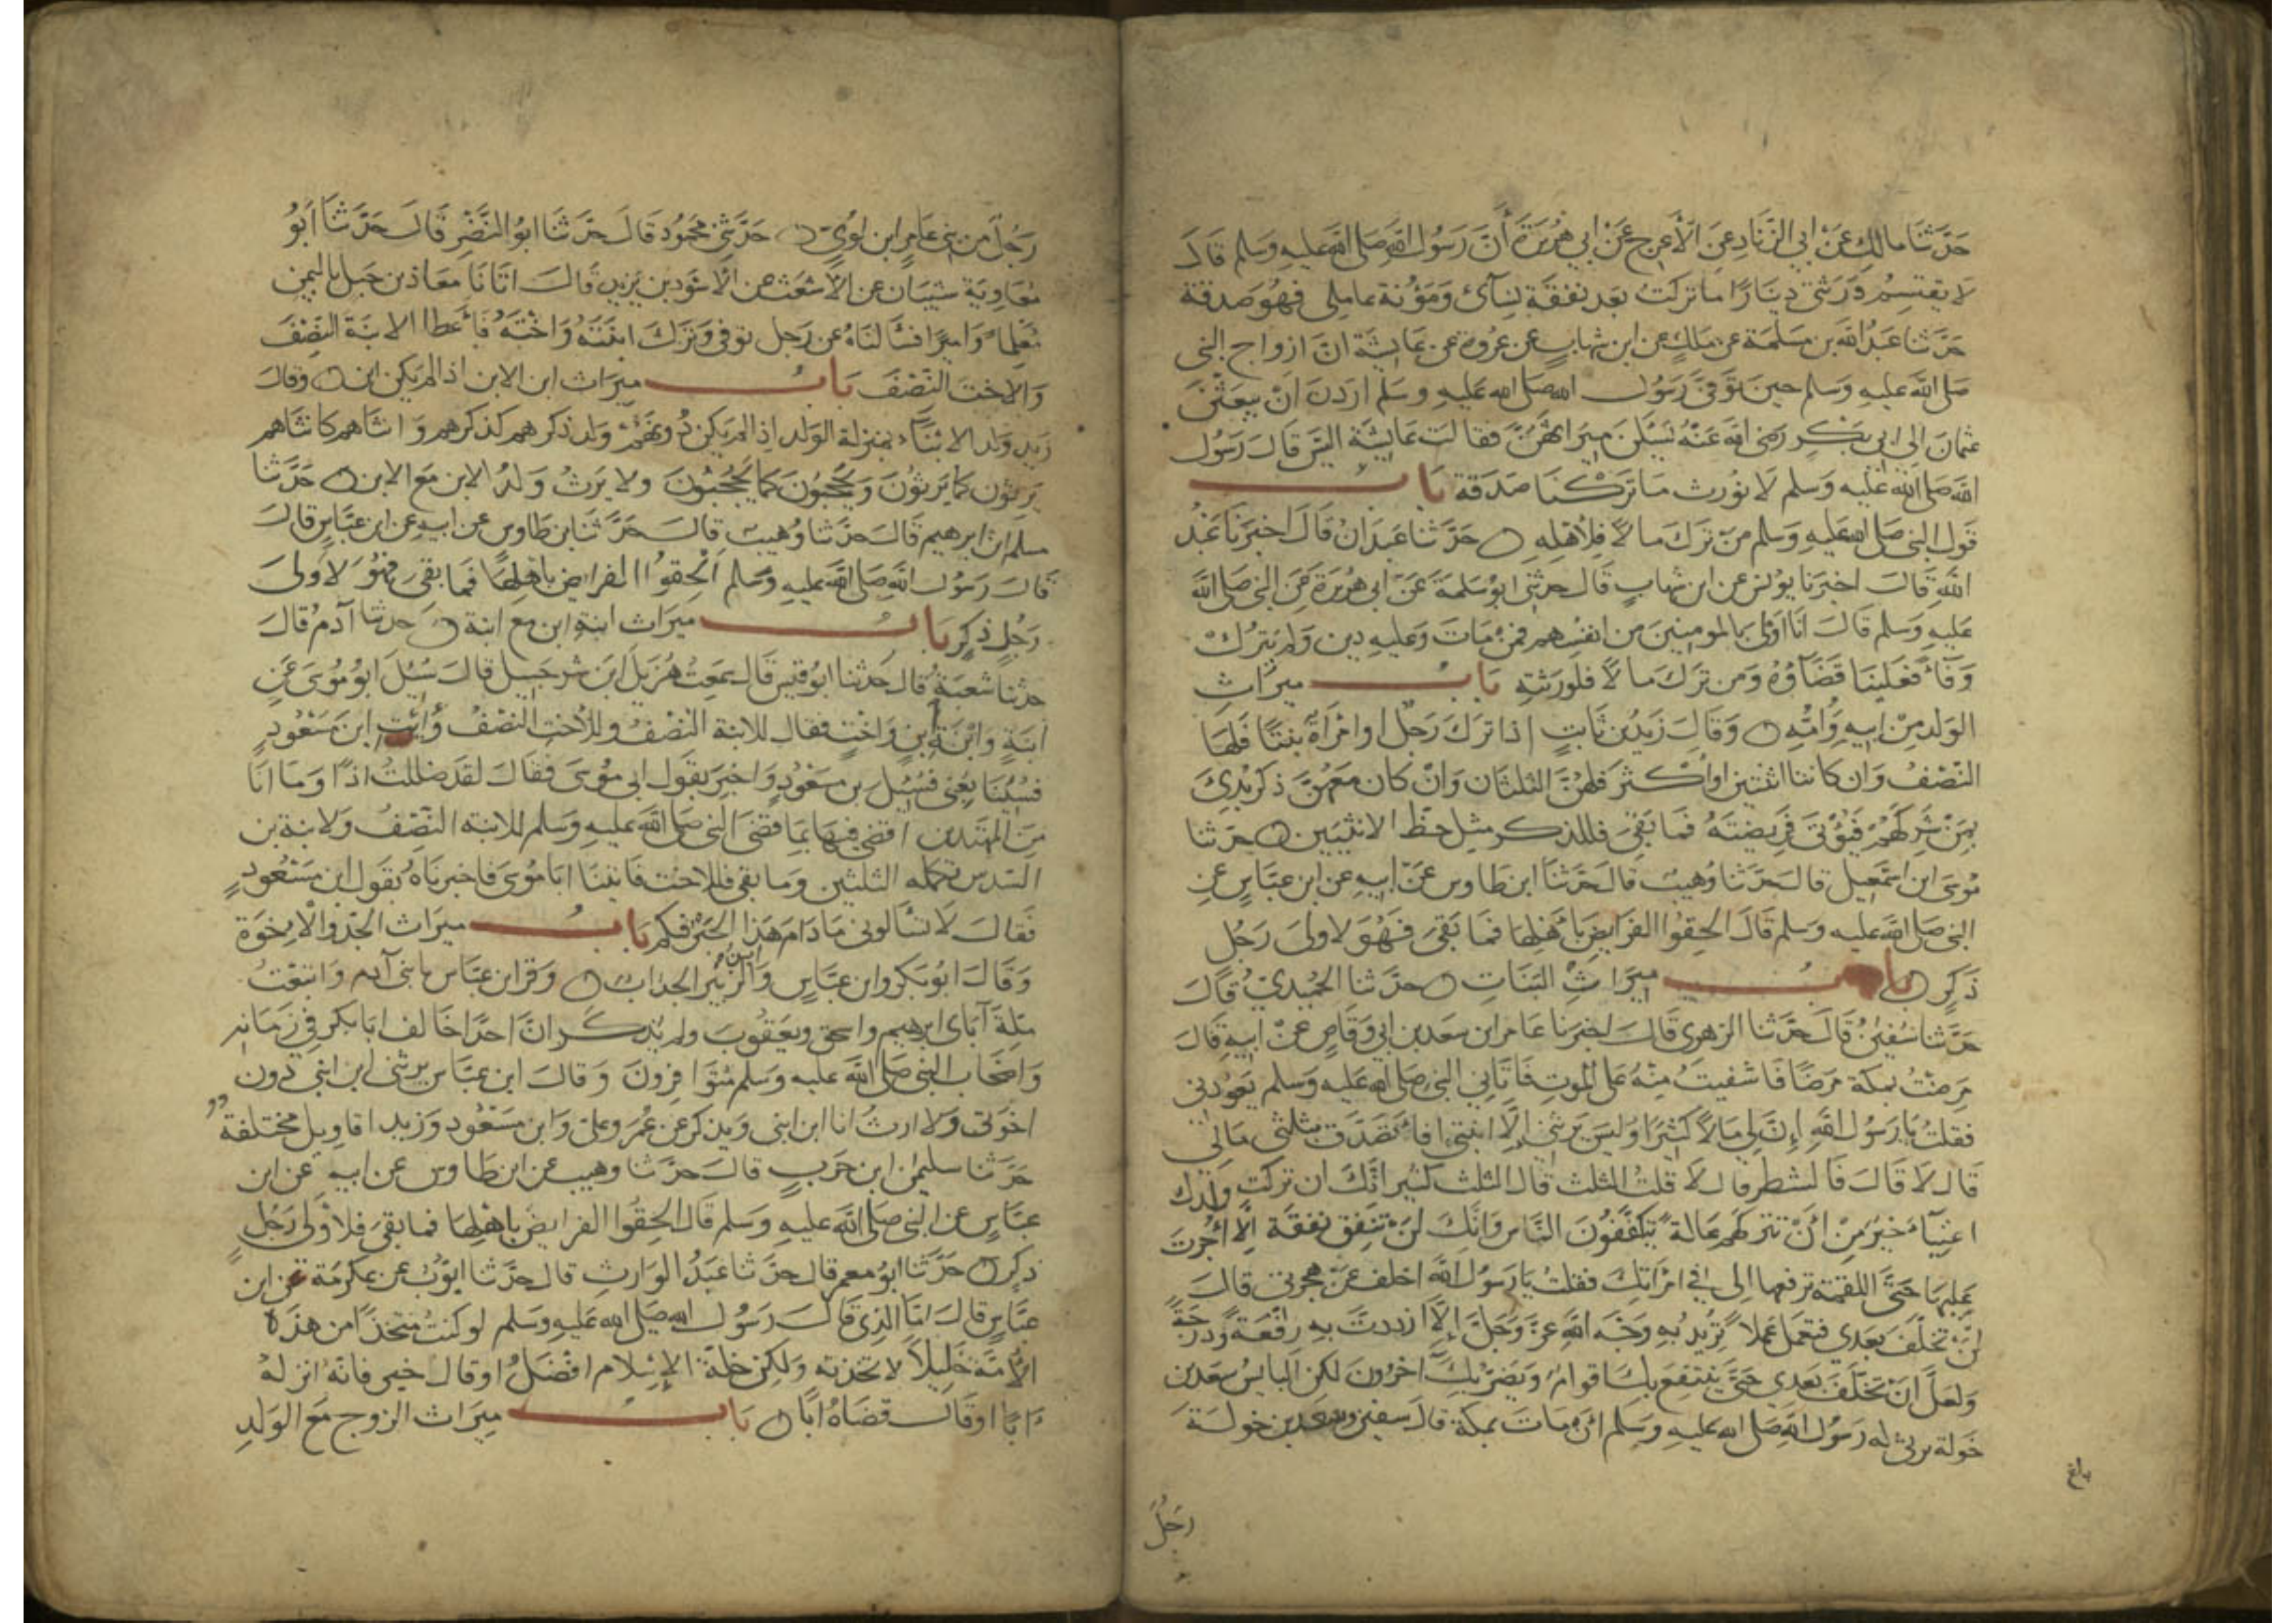 حدثنا مالك عن ابي الزناد عن الأعرج عن ابي هريرة أن رسول الله صلى الله عليه وسلم قال
لا يقتسم ورثتي دينارا ما تركت بعد نفقة نسآئ ومؤنة عاملي فهو صدقة
حدثنا عبد الله بن مسلمة عن ملك عن ابن شهاب عن عروة عن عايشة ان ازواج النبي
صلى الله عليه وسلم حين توفى رسول الله صلى الله عليه وسلم اردن ان يبعثن
عثمان الى ابي بكر رضي الله عنه يسئلن ميراثهن فقالت عايشة اليس قال رسول
الله صلى الله عليه وسلم لا نورث ما تركنا صدقة باب
قول النبي صلى الله عليه وسلم من ترك مالا فلأهله حدثنا عبدان قال اخبرنا عبد
الله قال اخبرنا يونس عن ابن شهاب قال حدثني ابو سلمة عن ابي هريرة عن النبي صلى الله
عليه وسلم قال انا اولى بالمومنين من انفسهم فمن مات وعليه دين ولم يترك
وفآء فعلينا قضآؤه ومن ترك مالا فلورثته باب ميراث
الولد من ابيه وامه وقال زيد بن ثابت اذا ترك رجل او امرأة بنتا فلها
النصف وان كانتا اثنتين او اكثر فلهن الثلثان وان كان معهن ذكر بدئ
بمن شركهم فيؤتى فريضته فما بقى فللذكر مثل حظ الانثيين حدثنا
موسى ابن اسمعيل قال حدثنا وهيب قال حدثنا ابن طاوس عن ابيه عن ابن عباس عن
النبي صلى الله عليه وسلم قال الحقوا الفرايض بأهلها فما بقى فهو لاولى رجل
ذكر باب ميراث البنات حدثنا الحميدي قال
حدثنا سفين قال حدثنا الزهري قال اخبرنا عامر ابن سعد بن ابي وقاص عن ابيه قال
مرضت بمكة مرضا فاشفيت منه على الموت فاتاني النبي صلى الله عليه وسلم يعودني
فقلت يا رسول الله إن لي مالا كثيرا وليس يرثني إلا ابنتي افأتصدق بثلثي مالي
قال لا قال فالشطر قال لا قلت الثلث قال الثلث كثير انك ان تركت ولدك
اغنيآء خير من أن تتركهم عالة يتكففون الناس وانك لن تنفق نفقة إلا أجرت
عليها حتى اللقمة ترفعها الى في امراتك فقلت يا رسول الله اخلف عن هجرتي قال
لن تخلف بعدي فتعمل عملا تريد به وجه الله عز وجل إلا ازددت به رفعة ودرجة
ولعل ان تخلف بعدي حتى ينتفع بك اقوام ويضر بك آخرون لكن البايس سعد بن
خولة يرثي له رسول الله صلى الله عليه وسلم ان مات بمكة قال سفين وسعد بن خولة
بلغ
رجل
رجل من بني عامر ابن لوي حدثني محمود قال حدثنا ابو النضر قال حدثنا ابو
معاوية شيبان عن الاشعث عن الاسود بن يزيد قال اتانا معاذ بن جبل باليمن
معلما واميرا فسالناه عن رجل توفي وترك ابنته واخته فأعطا الابنة النصف
والاخت النصف باب ميراث ابن الابن اذا لم يكن ابن وقال
زيد ولد الابناء بمنزلة الولد اذا لم يكن دونهم ولد ذكرهم كذكرهم وانثاهم كانثاهم
يرثون كما يرثون ويحجبون كما يحجبون ولا يرث ولد الابن مع الابن حدثنا
مسلم ابن ابرهيم قال حدثنا وهيب قال حدثنا ابن طاوس عن ابيه عن ابن عباس قال
قال رسول الله صلى الله عليه وسلم ألحقوا الفرايض باهلها فما بقى فهو لاولى
رجل ذكر باب ميراث ابنة ابن مع ابنة حدثنا آدم قال
حدثنا شعبة قال حدثنا ابو قيس قال سمعت هزيل ابن شرحبيل قال سئل ابو موسى عن
ابنة وابنة ابن واخت فقال للابنة النصف وللأخت النصف وأت ابن مسعود
فسيتابعني فسئل بن مسعود واخبر بقول ابي موسى فقال لقد ضللت اذا وما انا
من المهتدين اقضي فيها بما قضى النبي صلى الله عليه وسلم للابنة النصف ولابنة بن
السدس تكمله الثلثين وما بقي فللاخت فاتينا ابا موسى فاخبرناه بقول ابن مسعود
فقال لا تسألوني ما دام هذا الحبر فيكم باب ميراث الجد والإخوة
وقال ابو بكر وابن عباس وابن الزبير الجد اب وقرا ابن عباس يا بني آدم واتبعت
ملة آباى ابرهيم واسحق ويعقوب ولم يذكر ان احدا خالف ابا بكر في زمانه
واصحاب النبي صلى الله عليه وسلم متوافرون وقال ابن عباس يرثني ابن ابني دون
اخوتي ولا ارث انا ابن ابني ويذكر عن عمر وعلي وابن مسعود وزيد اقاويل مختلفة
حدثنا سليمن ابن حرب قال حدثنا وهيب عن ابن طاوس عن ابيه عن ابن
عباس عن النبي صلى الله عليه وسلم قال الحقوا الفرايض باهلها فما بقى فلأولى رجل
ذكر حدثنا ابو معمر قال حدثنا عبد الوارث قال حدثنا ايوب عن عكرمة عن ابن
عباس قال اما الذي قال رسول الله صلى الله عليه وسلم لو كنت متخذا من هذه
الأمة خليلا لاتخذته ولكن خلة الإسلام افضل او قال خير فانه انزله
ابا او قال قضاه ابا باب ميراث الزوج مع الولد